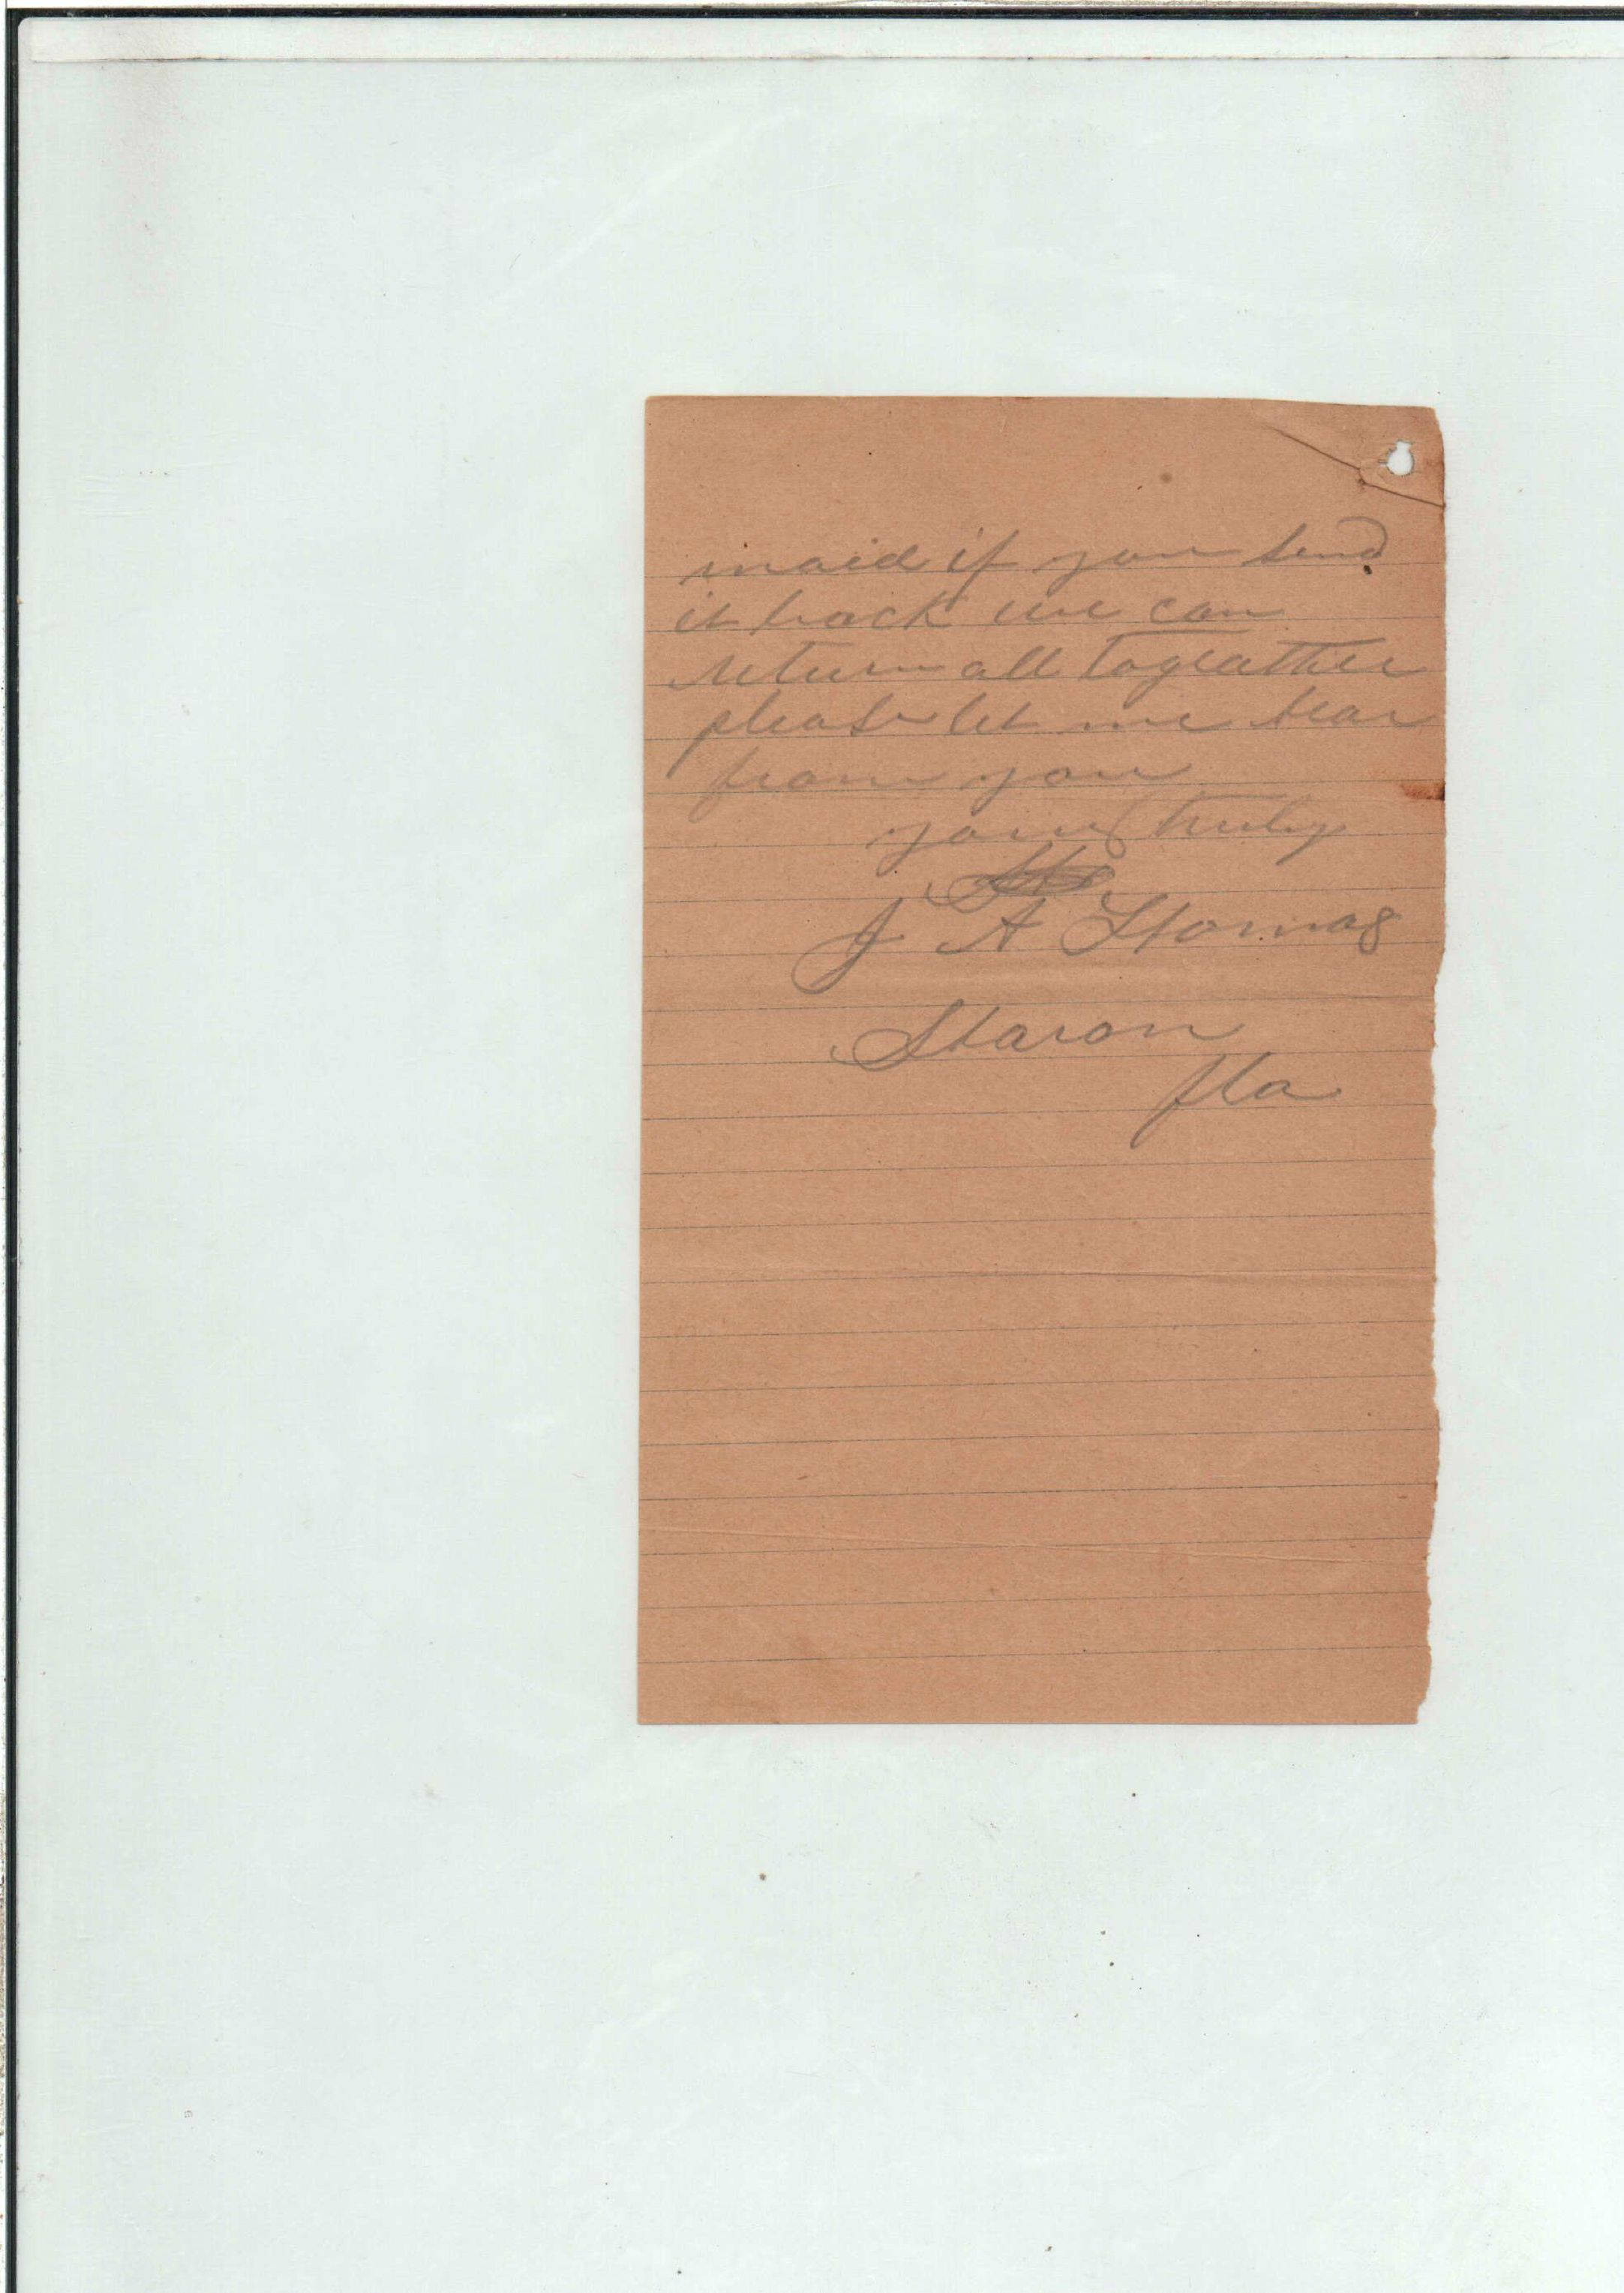 maid if you send
it back we can
return all togeather
please let me hear
from you
yours truly
J A Thomas
Sharon
fla